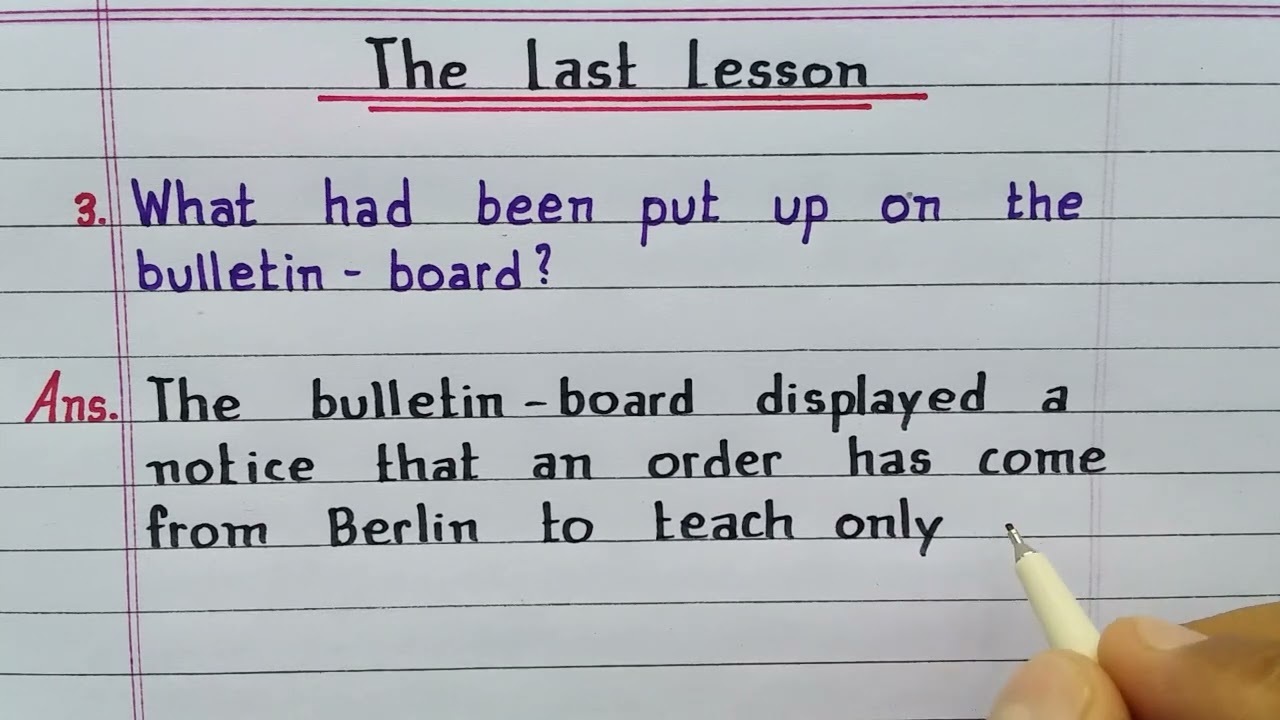 The Last Lesson
3. What had been put up on the
bulletin - board?
Ans. The bulletin - board displayed a
notice that an order has come
from Berlin to teach only